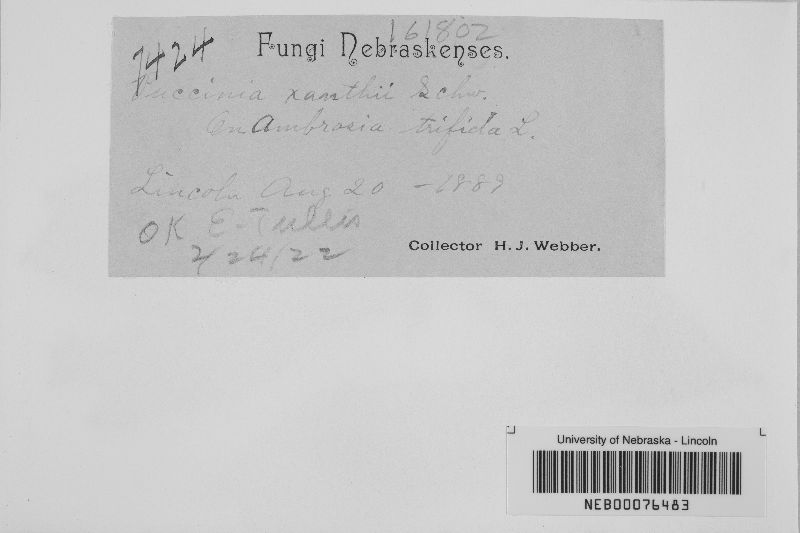 161802
7424
Fungi Nebraskenses.
Puccinia xanthii Schw.
On Ambrosia trifida L.
Lincoln Aug 20 - 1889
OK E-Tullis
2/24/22
Collector H. J. Webber.
University of Nebraska - Lincoln
NEB00076483